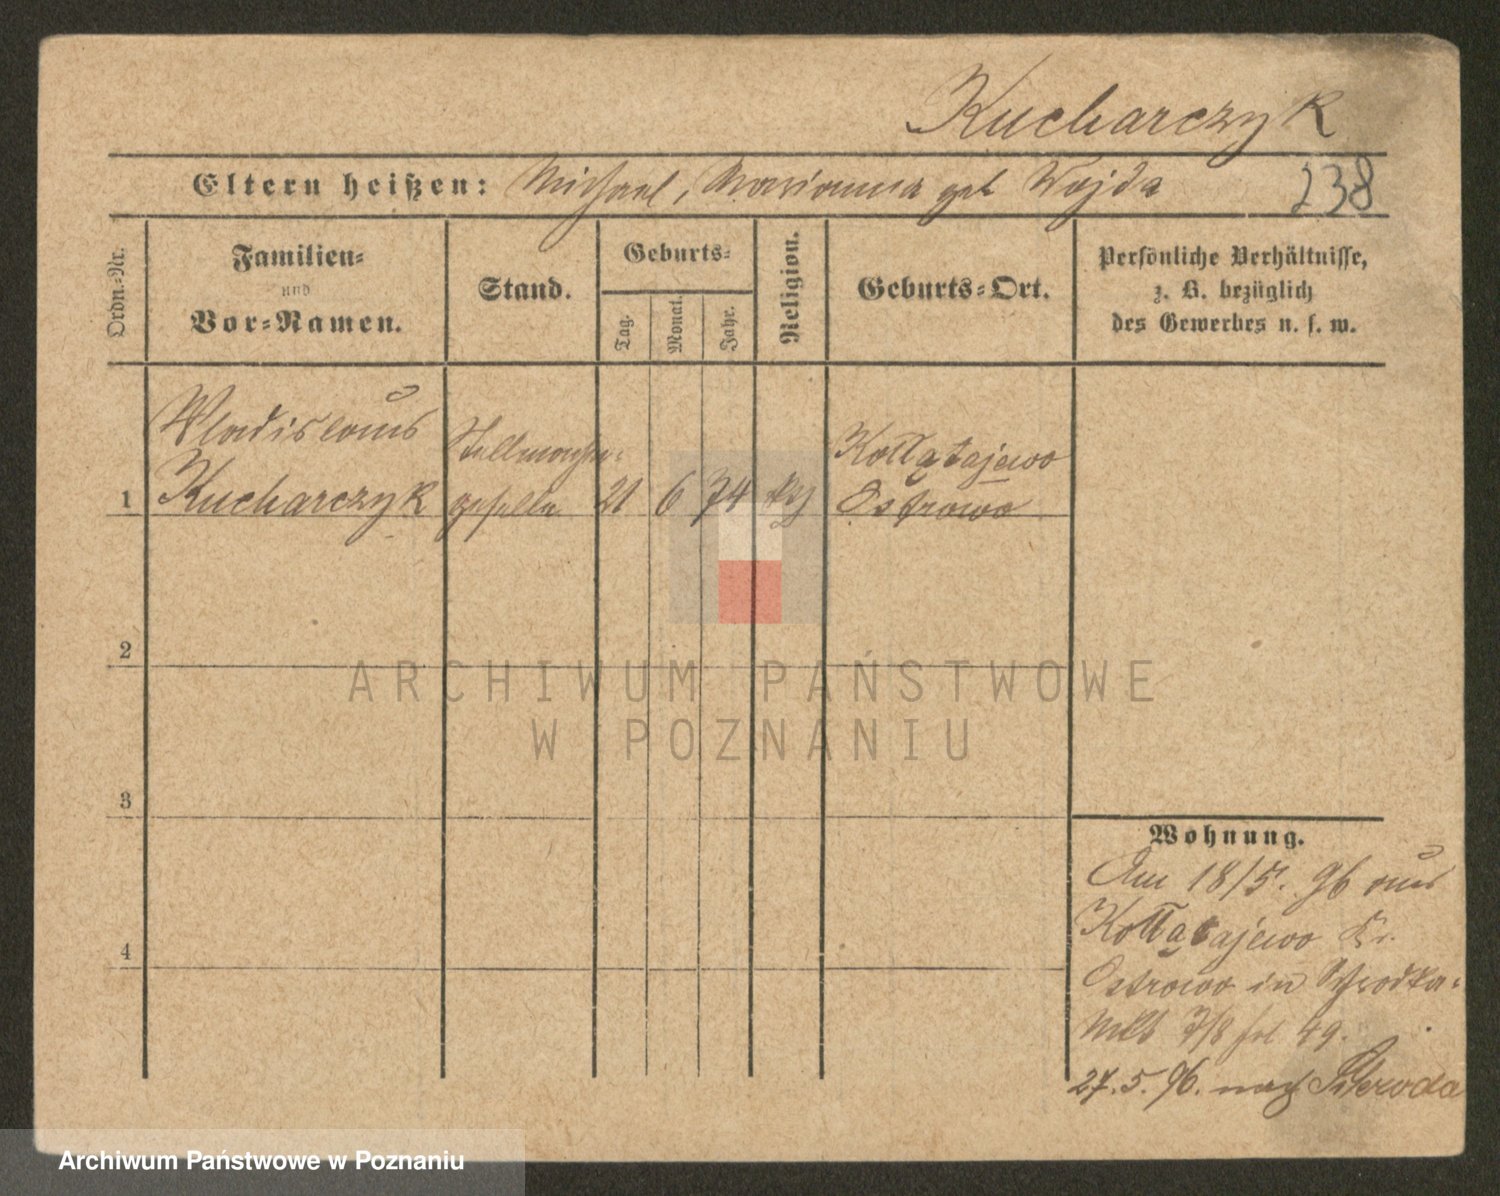 Kucharczyk
Eltern heißen: Michael, Marianna geb Wojda 238
Ordn.-Nr.
Familien-
und
Vor-Namen.
Stand.
Geburts-
Tag.
Monat.
Jahr.
Religion.
Geburts-Ort.
Persönliche Verhältnisse,
z. B. bezüglich
des Gewerbes u. s. w.
Wladislaus Stellmacher- Kołłątajewo
1 Kucharczyk geselle 21 6 74 Ostrowo
2
3
4
Wohnung.
Am 18/5. 96 aus
Kołłątajewo Kr.
Ostrowo in
7/8 49.
27.5.96. nach Schroda
ARCHIWUM PAŃSTWOWE
W POZNANIU
Archiwum Państwowe w Poznaniu